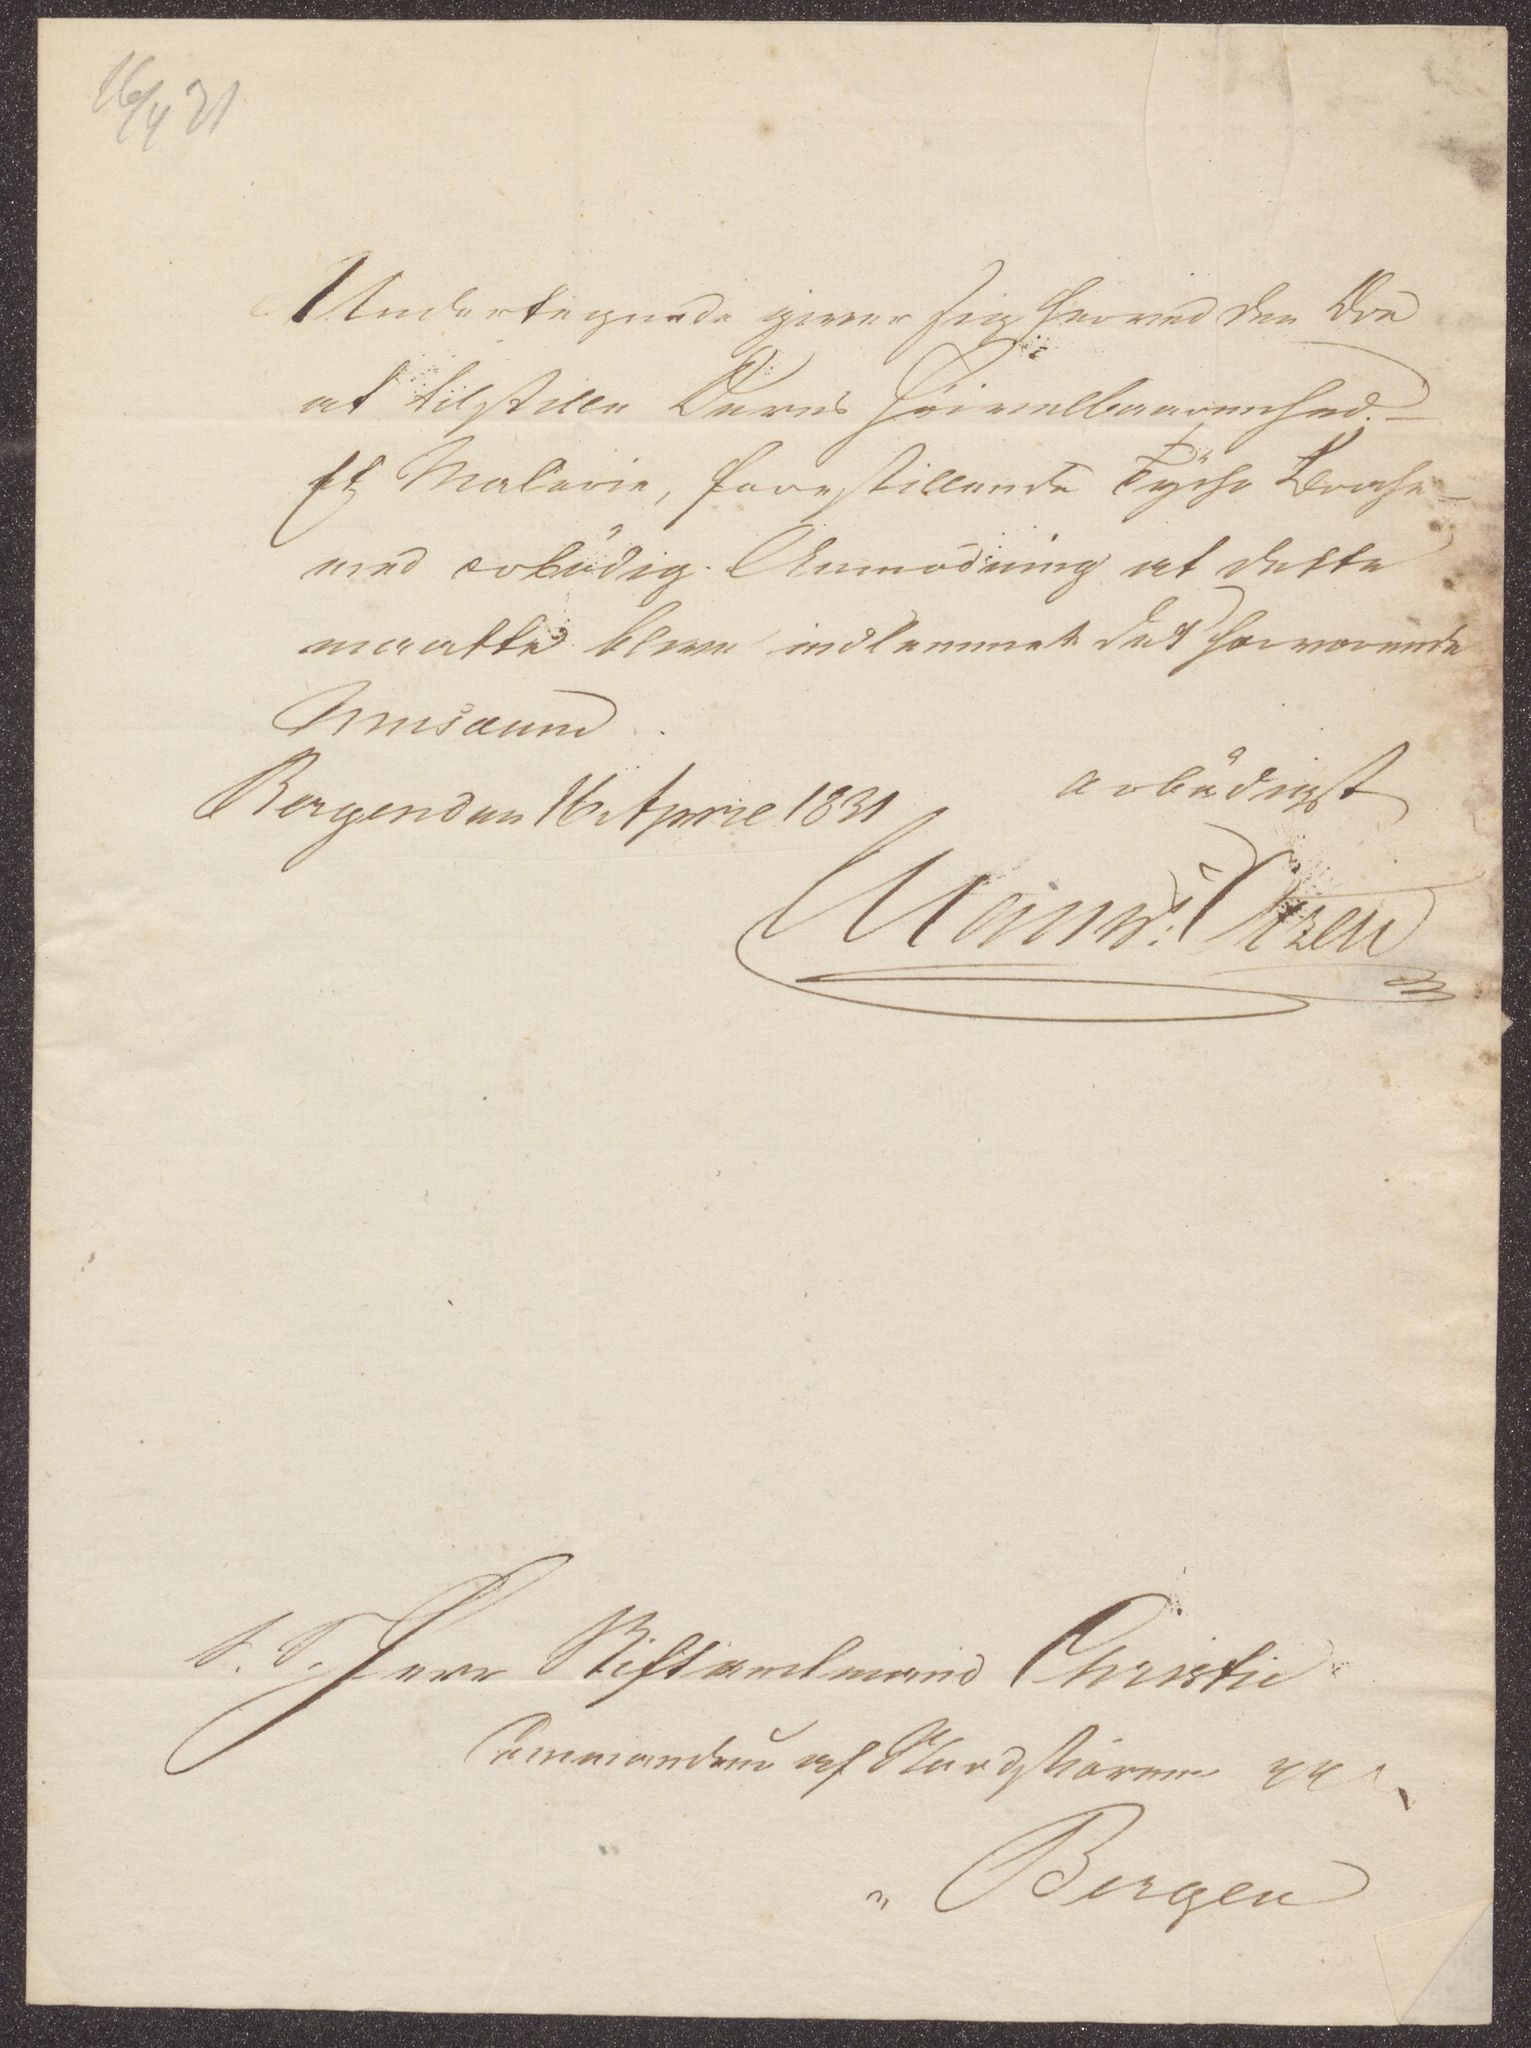 16/4 31
Undertegnede giver sig herved den Ære
at tilstille Deres Høivelbaarenhed
Et Malerie, forestillende Tÿcho Brahe
med ærbødig Anmodning at dette
maatte blive indlemmet det herværende
Musæum.
Bergen den 16 April 1831
ærbødigst
S. T. Herr Stiftamtmand Christie
Commandeur af Nordstiernen
Bergen